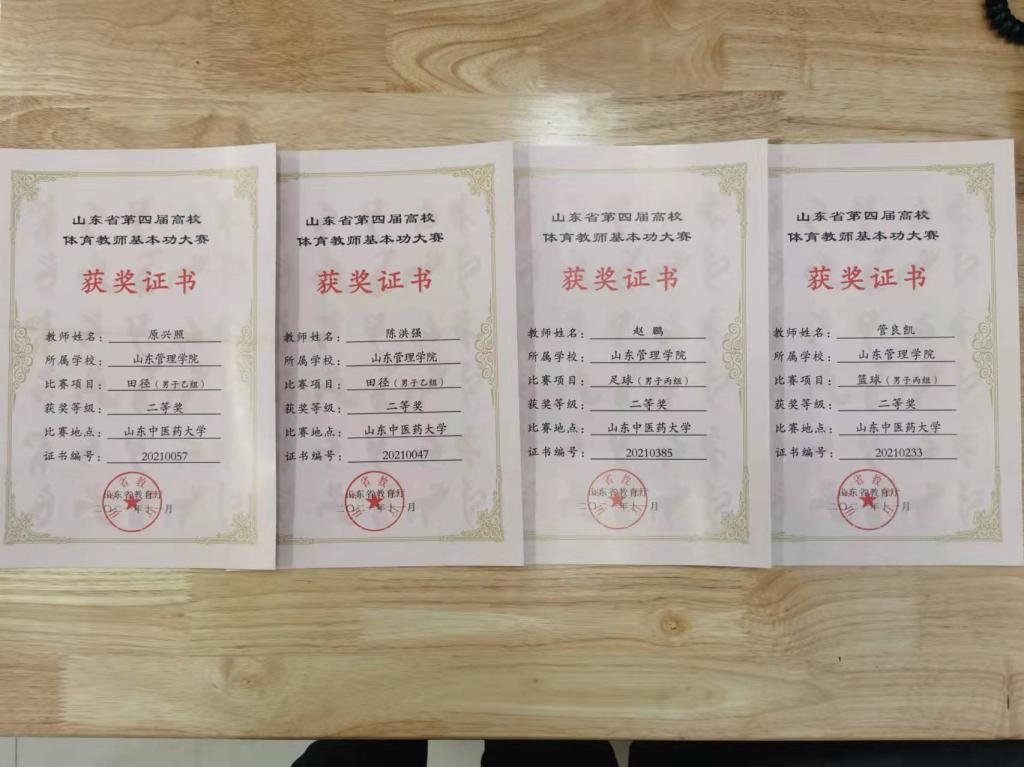 山东省第四届高校
体育教师基本功大赛
获奖证书
教师姓名：原兴照
所属学校：山东管理学院
比赛项目：田径（男子乙组）
获奖等级：二等奖
比赛地点：山东中医药大学
证书编号：20210057
山东省教育厅
山东省第四届高校
体育教师基本功大赛
获奖证书
教师姓名：陈洪强
所属学校：山东管理学院
比赛项目：田径（男子乙组）
获奖等级：二等奖
比赛地点：山东中医药大学
证书编号：20210047
山东省教育厅
山东省第四届高校
体育教师基本功大赛
获奖证书
教师姓名：赵鹏
所属学校：山东管理学院
比赛项目：足球（男子丙组）
获奖等级：二等奖
比赛地点：山东中医药大学
证书编号：20210385
山东省教育厅
山东省第四届高校
体育教师基本功大赛
获奖证书
教师姓名：管良凯
所属学校：山东管理学院
比赛项目：篮球（男子丙组）
获奖等级：二等奖
比赛地点：山东中医药大学
证书编号：20210233
山东省教育厅